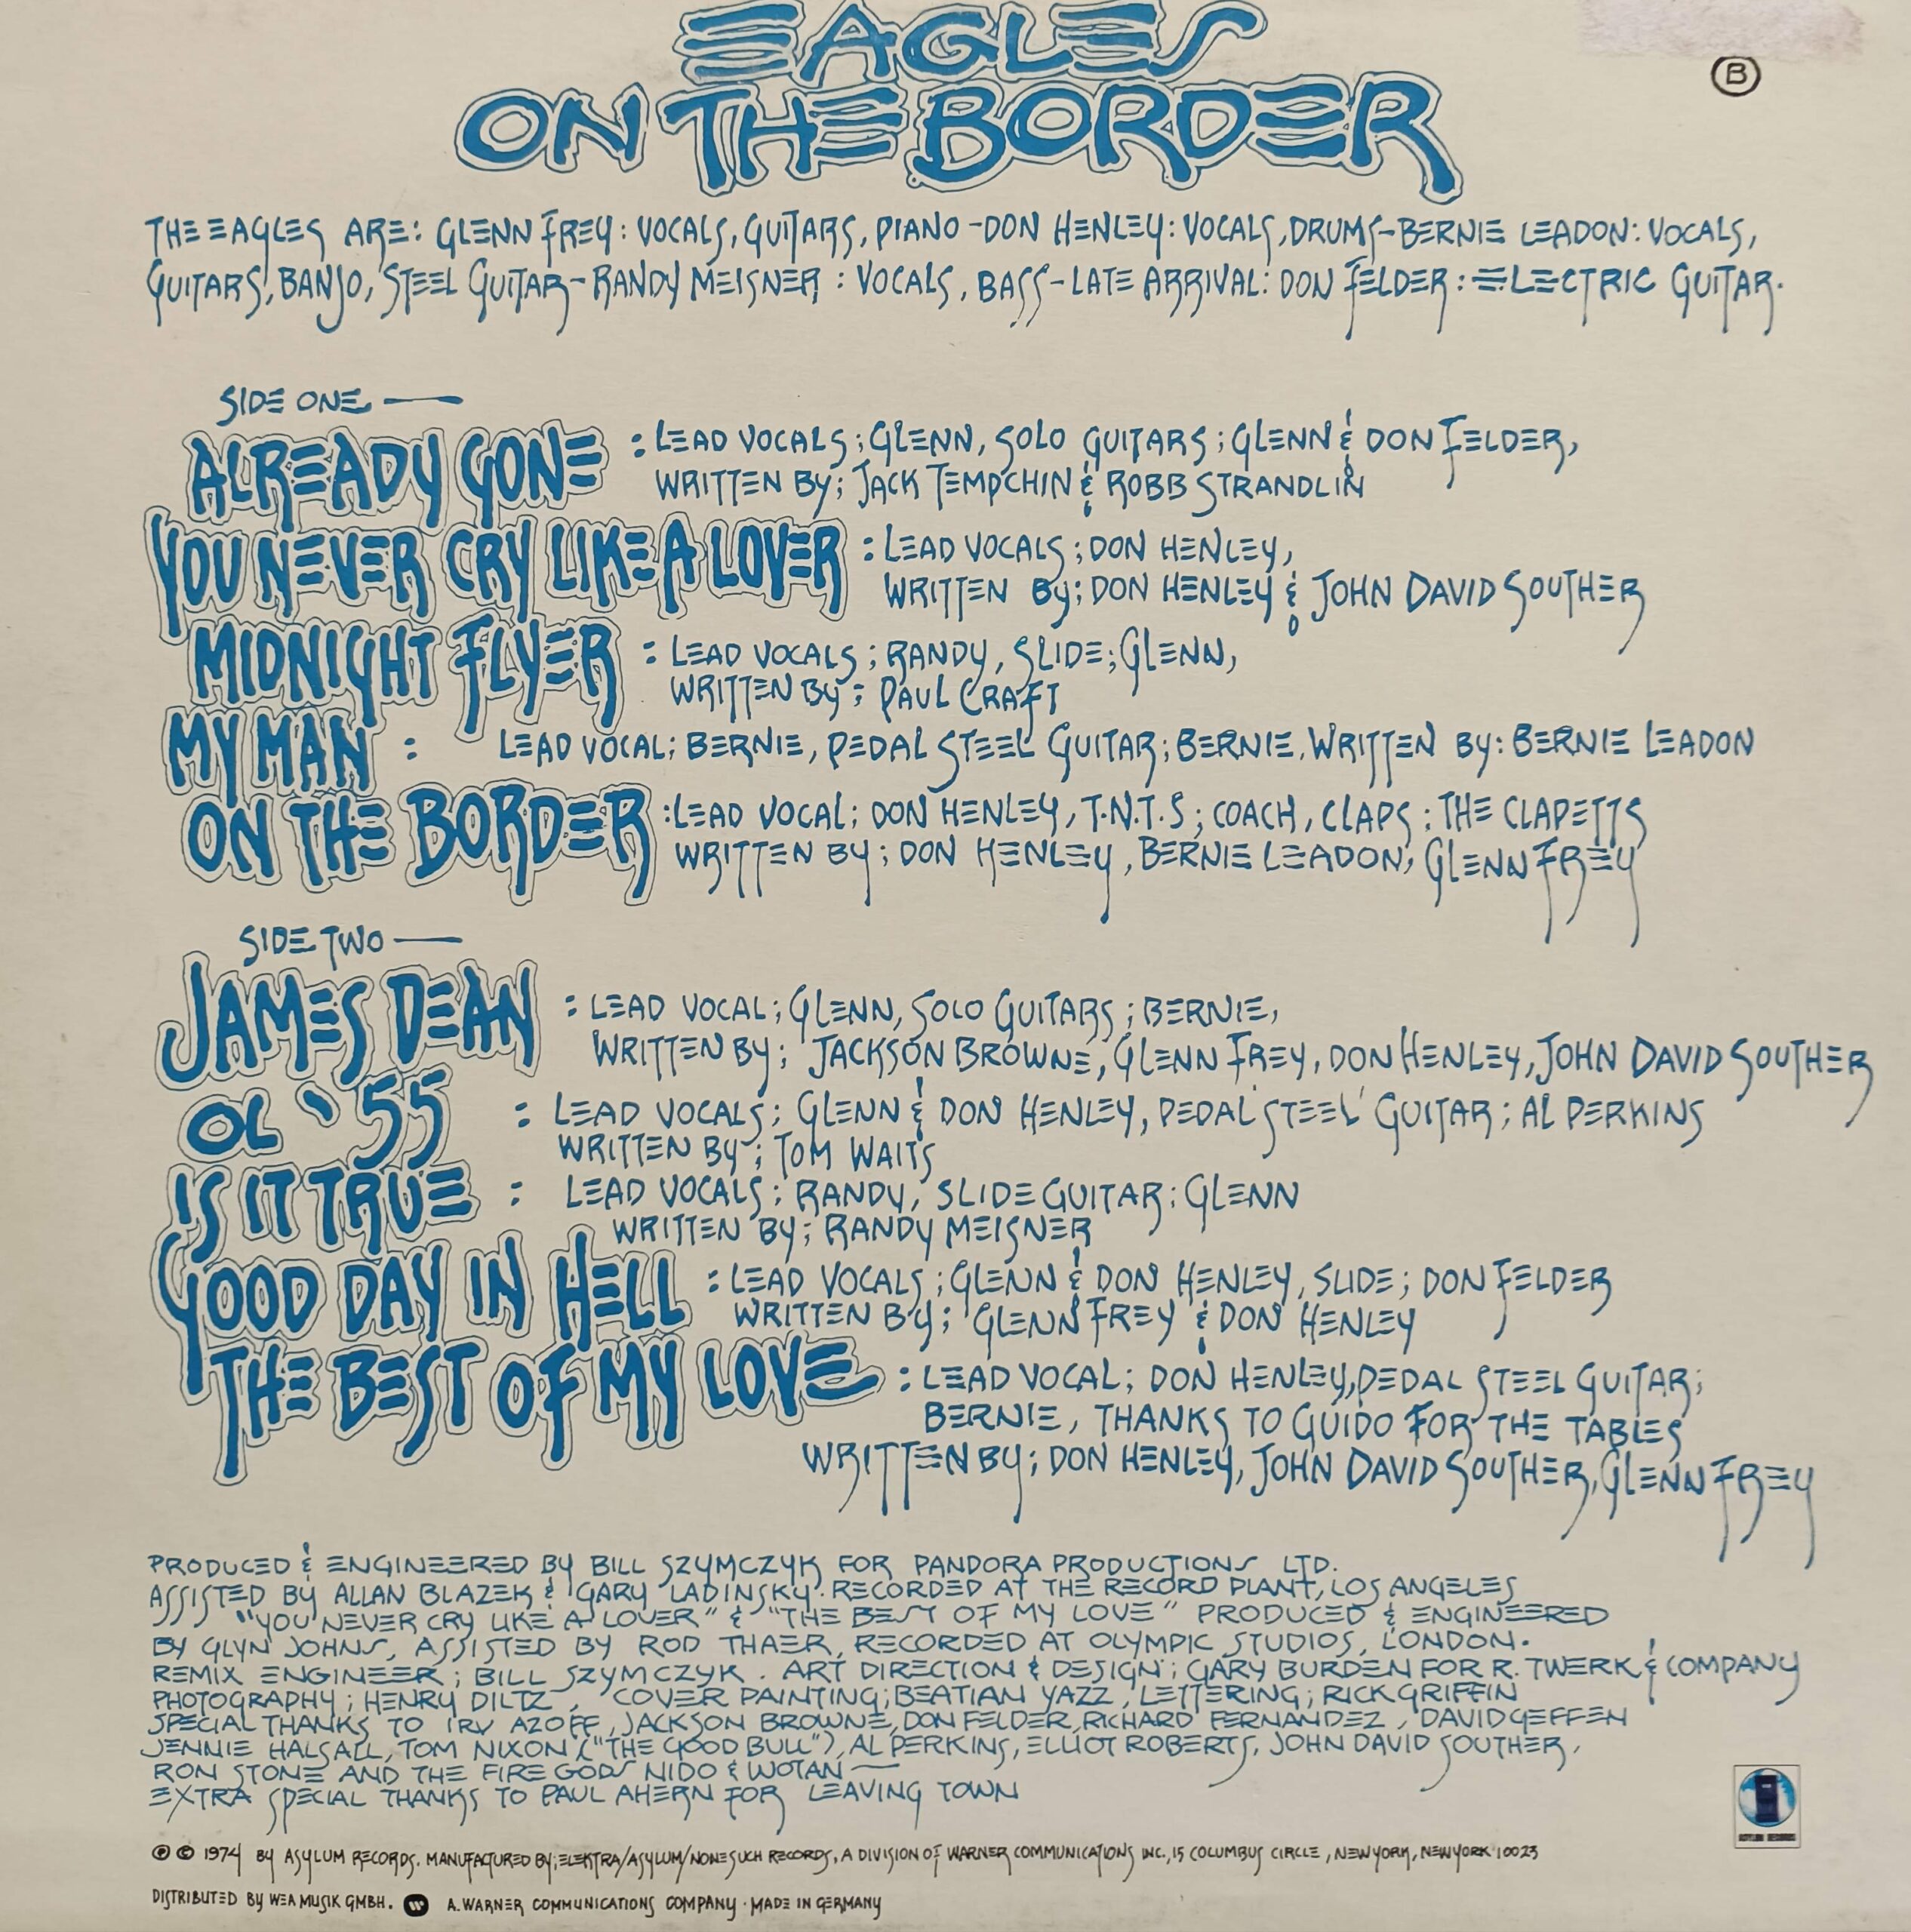 EAGLES
ON THE BORDER
B
THE EAGLES ARE: GLENN FREY: VOCALS, GUITARS, PIANO - DON HENLEY: VOCALS, DRUMS - BERNIE LEADON: VOCALS,
GUITARS, BANJO, STEEL GUITAR - RANDY MEISNER: VOCALS, BASS - LATE ARRIVAL: DON FELDER: ELECTRIC GUITAR.
SIDE ONE —
ALREADY GONE : LEAD VOCALS; GLENN, SOLO GUITARS; GLENN & DON FELDER,
WRITTEN BY; JACK TEMPCHIN & ROBB STRANDLIN
YOU NEVER CRY LIKE A LOVER : LEAD VOCALS; DON HENLEY,
WRITTEN BY; DON HENLEY & JOHN DAVID SOUTHER
MIDNIGHT FLYER : LEAD VOCALS; RANDY, SLIDE; GLENN,
WRITTEN BY; PAUL CRAFT
MY MAN : LEAD VOCAL; BERNIE, PEDAL STEEL GUITAR; BERNIE, WRITTEN BY: BERNIE LEADON
ON THE BORDER : LEAD VOCAL; DON HENLEY, T.N.T.S; COACH, CLAPS; THE CLAPETTS
WRITTEN BY; DON HENLEY, BERNIE LEADON, GLENN FREY
SIDE TWO —
JAMES DEAN : LEAD VOCAL; GLENN, SOLO GUITARS; BERNIE,
WRITTEN BY; JACKSON BROWNE, GLENN FREY, DON HENLEY, JOHN DAVID SOUTHER
OL '55 : LEAD VOCALS; GLENN & DON HENLEY, PEDAL STEEL GUITAR; AL PERKINS
WRITTEN BY; TOM WAITS
IS IT TRUE : LEAD VOCALS; RANDY, SLIDE GUITAR; GLENN
WRITTEN BY; RANDY MEISNER
GOOD DAY IN HELL : LEAD VOCALS; GLENN & DON HENLEY, SLIDE; DON FELDER
WRITTEN BY; GLENN FREY & DON HENLEY
THE BEST OF MY LOVE : LEAD VOCAL; DON HENLEY, PEDAL STEEL GUITAR;
BERNIE, THANKS TO GUIDO FOR THE TABLES
WRITTEN BY; DON HENLEY, JOHN DAVID SOUTHER, GLENN FREY
PRODUCED & ENGINEERED BY BILL SZYMCZYK FOR PANDORA PRODUCTIONS LTD.
ASSISTED BY ALLAN BLAZEK & GARY LADINSKY. RECORDED AT THE RECORD PLANT, LOS ANGELES
"YOU NEVER CRY LIKE A LOVER" & "THE BEST OF MY LOVE" PRODUCED & ENGINEERED
BY GLYN JOHNS, ASSISTED BY ROD THAER, RECORDED AT OLYMPIC STUDIOS, LONDON.
REMIX ENGINEER; BILL SZYMCZYK. ART DIRECTION & DESIGN; GARY BURDEN FOR R. TWERK & COMPANY
PHOTOGRAPHY; HENRY DILTZ, COVER PAINTING; BEATIAN YAZZ, LETTERING; RICK GRIFFIN
SPECIAL THANKS TO IRV AZOFF, JACKSON BROWNE, DON FELDER, RICHARD FERNANDEZ, DAVID GEFFEN
JENNIE HALSALL, TOM NIXON ("THE GOOD BULL"), AL PERKINS, ELLIOT ROBERTS, JOHN DAVID SOUTHER,
RON STONE AND THE FIRE GODS NIDO & WOTAN —
EXTRA SPECIAL THANKS TO PAUL AHERN FOR LEAVING TOWN
℗ © 1974 BY ASYLUM RECORDS. MANUFACTURED BY; ELEKTRA/ASYLUM/NONESUCH RECORDS, A DIVISION OF WARNER COMMUNICATIONS INC., 15 COLUMBUS CIRCLE, NEW YORK, NEW YORK 10023
DISTRIBUTED BY WEA MUSIK GMBH. W A. WARNER COMMUNICATIONS COMPANY · MADE IN GERMANY
ASYLUM RECORDS